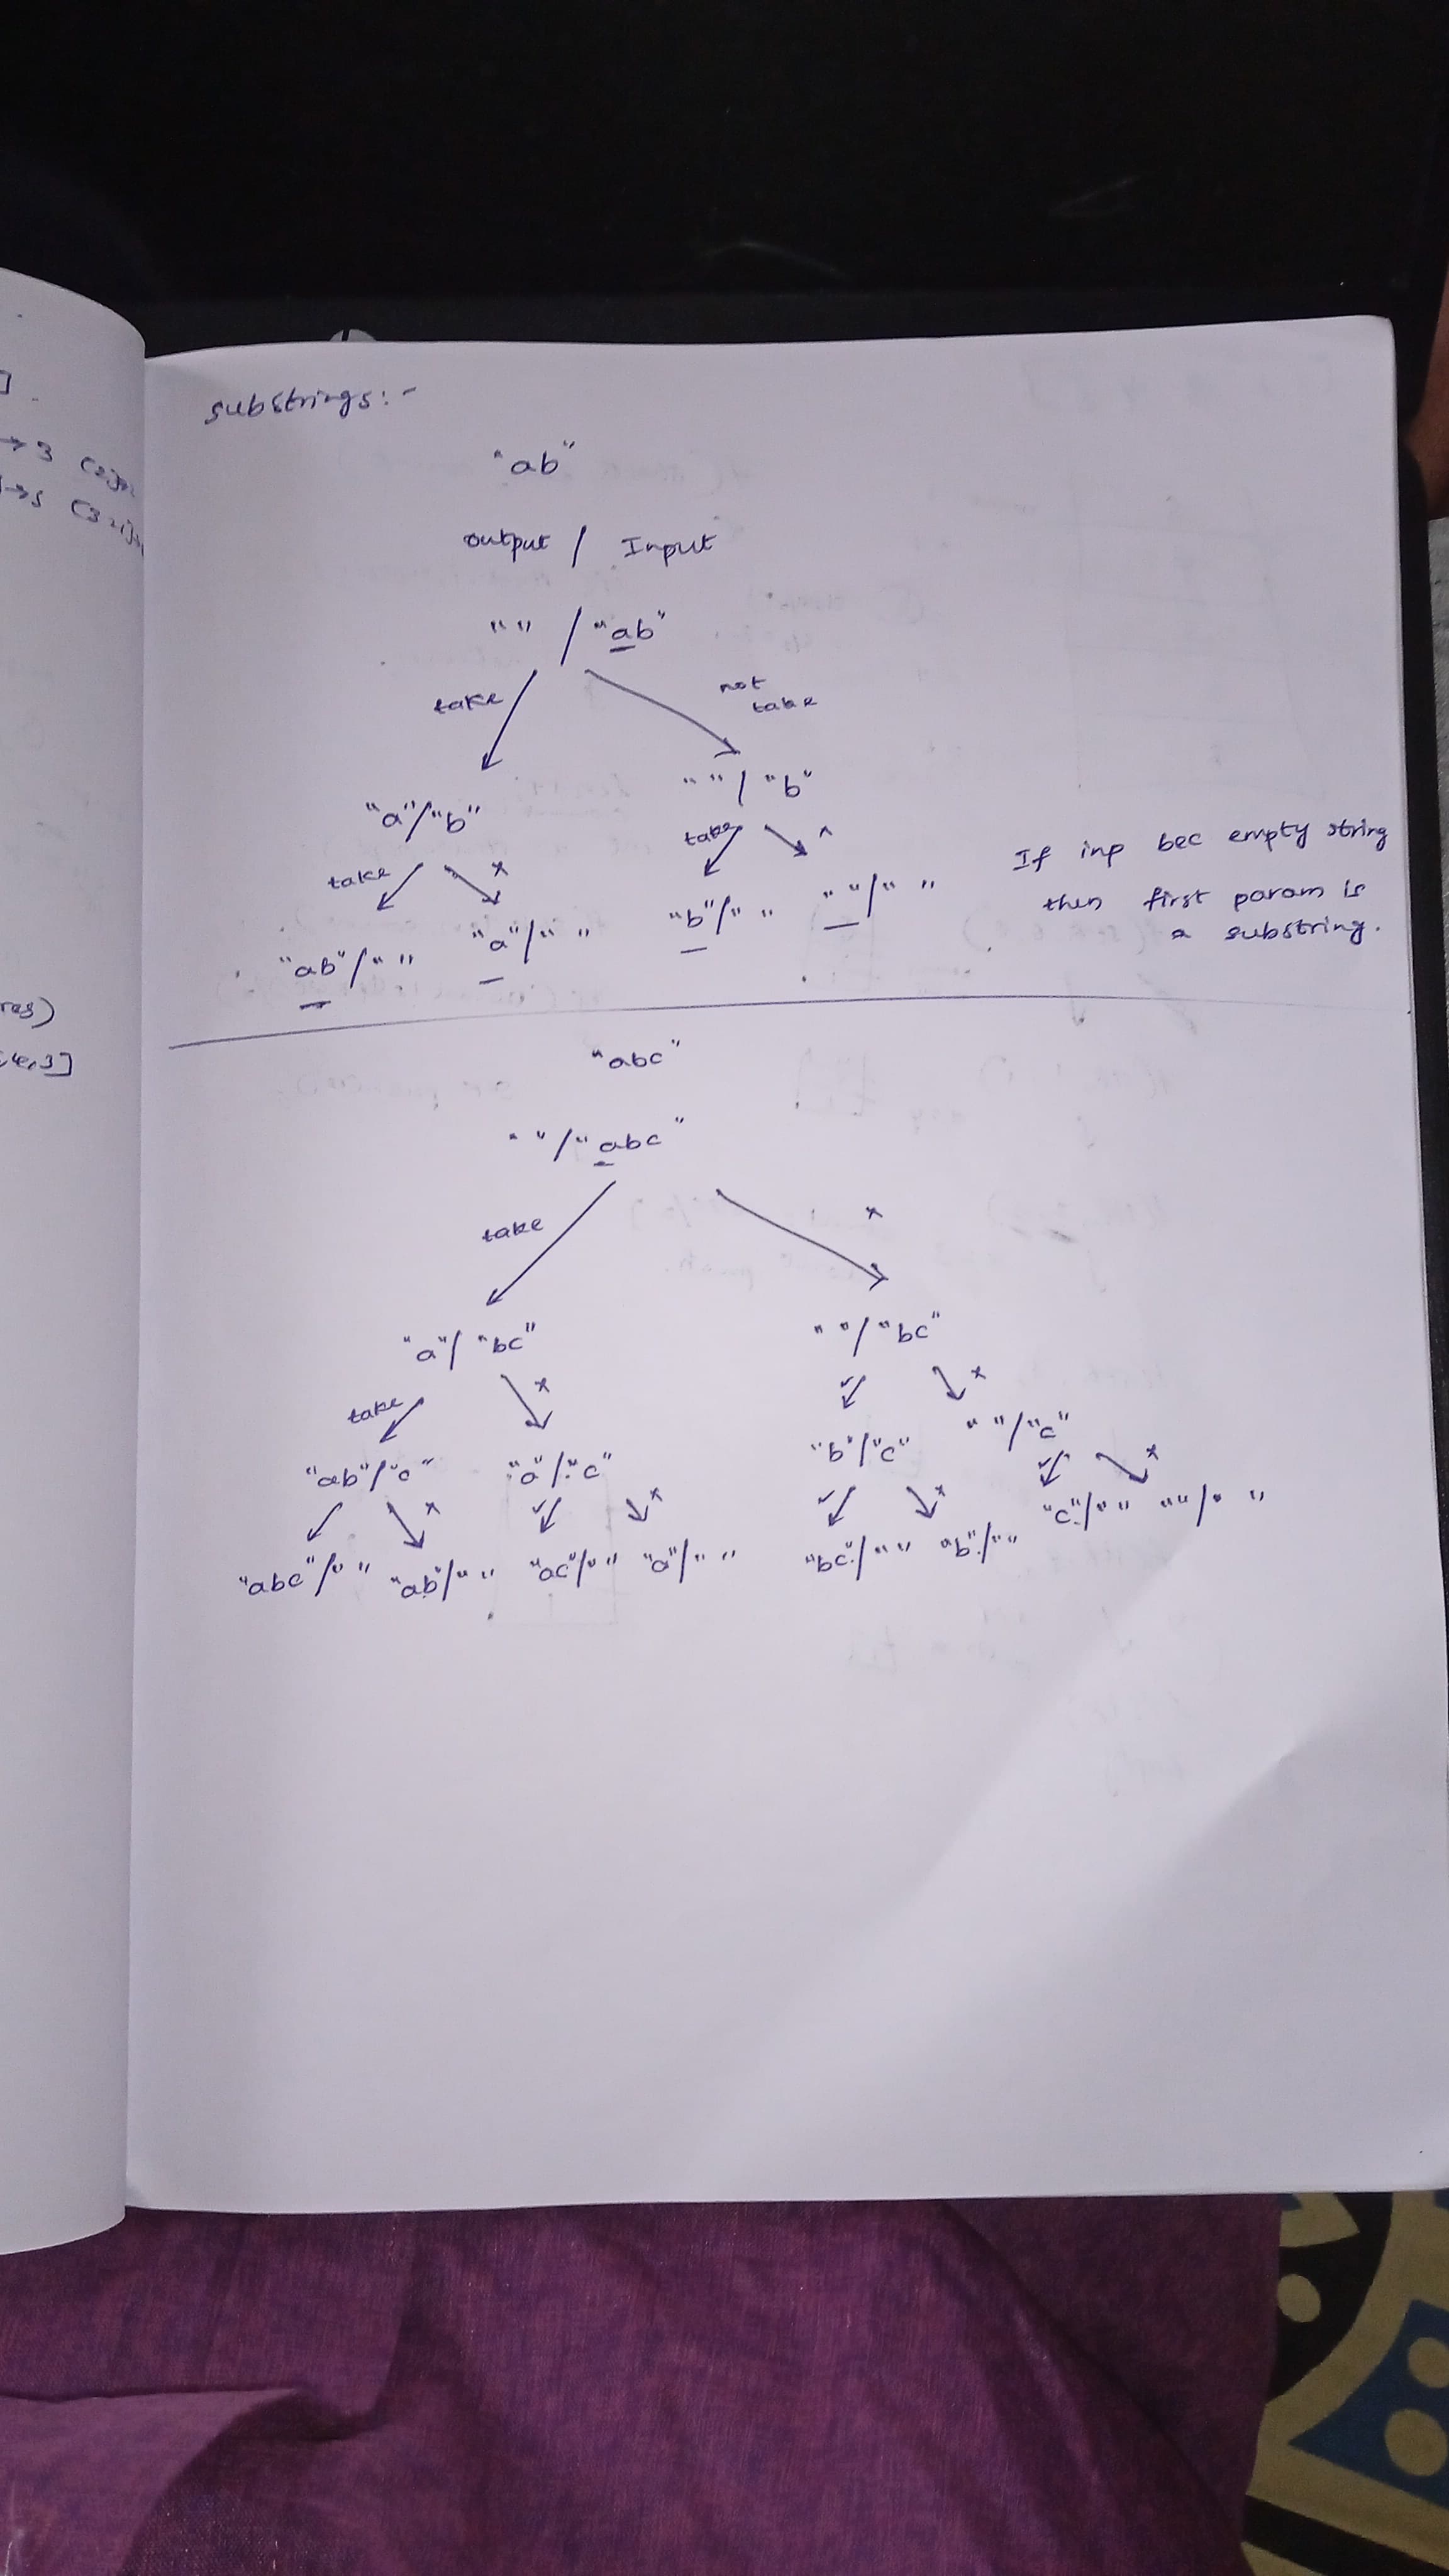 ]
→3
→5
res)
,4,3]
substrings:-
"ab"
output / Input
" " / "ab"
take
not
take
"a"/"b"
" "/ "b"
take x
take x
"ab"/" " "a"/" " "b"/" " " "/" "
If inp bec empty string
then first param is
a substring.
"abc"
" "/"abc"
take x
"a"/ "bc" " "/"bc"
take x x
"ab"/"c" "a"/"c" "b"/"c" " "/"c"
x x x x
"abc"/" " "ab"/" " "ac"/" " "a"/" " "bc"/" " "b"/" " "c"/" " " "/" "